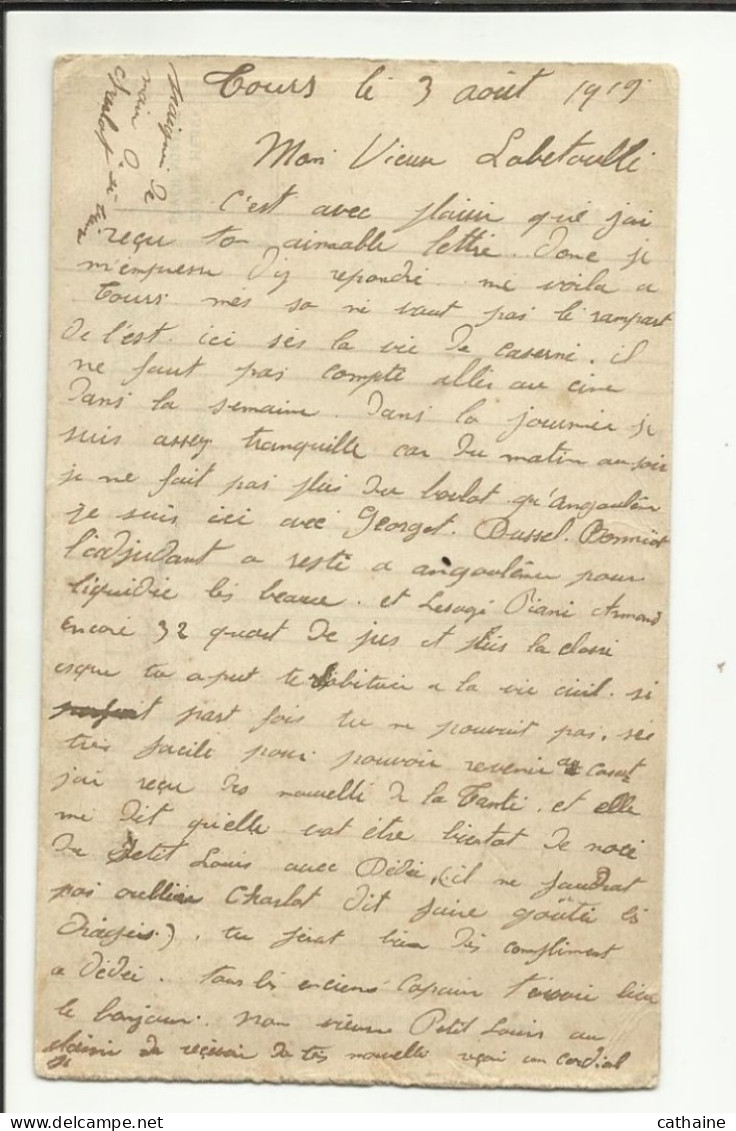 Tours le 3 août 1919
Mon Vieux Labetoulle
C'est avec plaisir que jai
reçu ton aimable lettre. donc je
m'empresse d'y repondre. me voila a
Tours mes sa ne vaut pas le rampart
de l'est. ici ses la vie de caserne. il
ne faut pas compte allez au cine
dans la semaine. dans la journée je
suis assez tranquille car du matin au soir
je ne fait pas plus du boulot qu'angoulême
je suis ici avec Georget. Dussel.
l'adjudant a resté a angoulême pour
liquidie les beaux. et Lesage Piani Armand
encore 32 quart de jus et puis la classe
esque tu a put te habituer a la vie civil. si
part fois tu ne pouvait pas. ses
très facile pour pouvoir revenir casat
jai reçu des nouvelle de la Tante. et elle
me dit qu'elle vat être bientot de noce
du Petit Louis avec Dédée, (il ne faudrat
pas oublier Charlot dit faire goûté les
dragées). tu ferat bien des compliment
a dédée. tous les anciens Copain t'envoie bien
le bonjour. mon vieux Petit Louis au
plaisir de reçevoir de tes nouvelle reçoi un cordial
de
main de
Charlot
cathaine